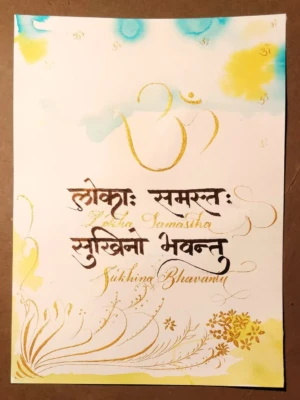 ॐ
लोकाः समस्तः
Lokha Samastha
सुखिनो भवन्तु
Sukhino Bhavantu